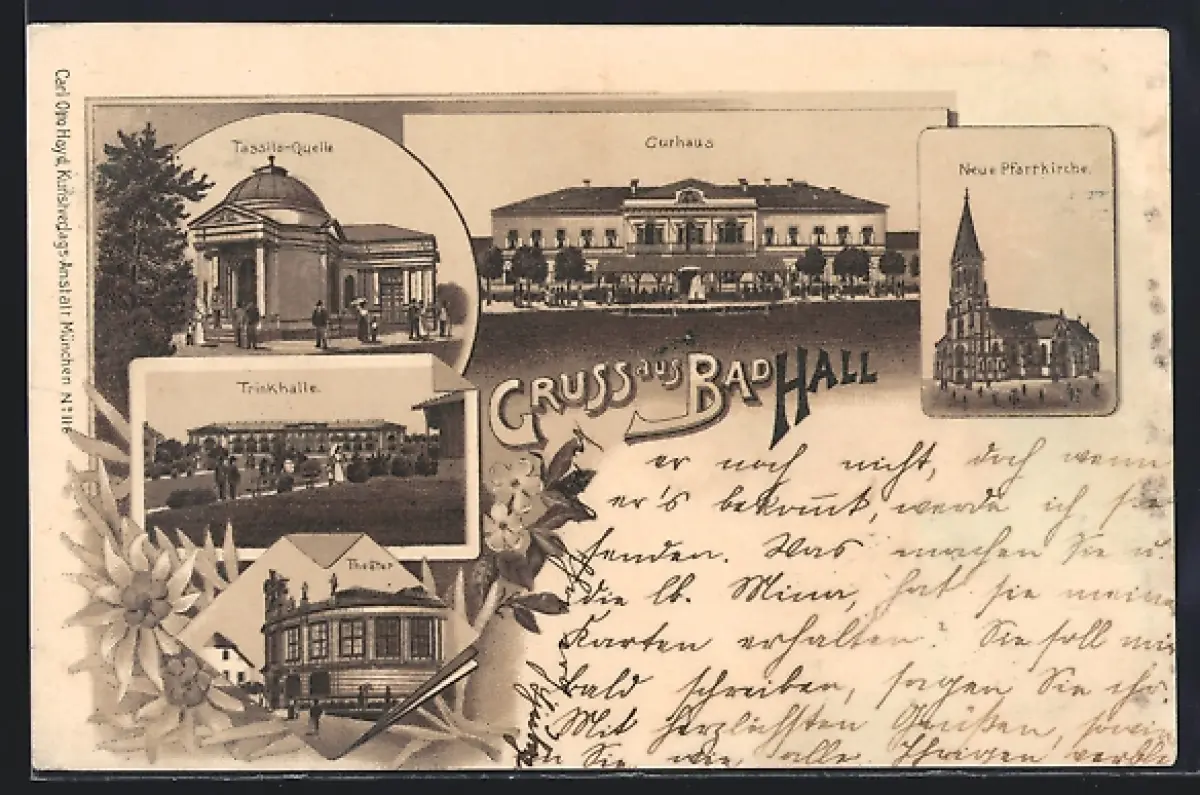 Carl Otto Hayd, Kunstverlags-Anstalt München No 1116
Tassilo-Quelle
Curhaus
Neue Pfarrkirche.
Trinkhalle.
Theater
GRUSS aus BAD HALL
er noch nicht, doch wenn
er's bekommt, werde ich sie
senden. Was machen Sie u.
die lb. Minna, hat sie meine
Karten erhalten? Sie soll mir
bald schreiben, sagen Sie ihr.
Mit herzlichsten Grüßen, sowie
an Sie, wie alle Ihrigen verbl